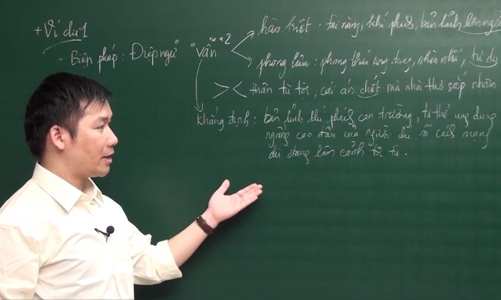 + Ví dụ 1
- Biện pháp: Điệp ngữ "vẫn" 2
hào kiệt: tài năng, khí phách, bản lĩnh
phong lưu: phong thái ung dung,
>< thân tù tội, cái án chết mà nhà thơ gặp phải
khẳng định: bản lĩnh khí phách can trường, tư thế ung dung
ngẩng cao đầu của người
dù đang lâm cảnh tù tội.